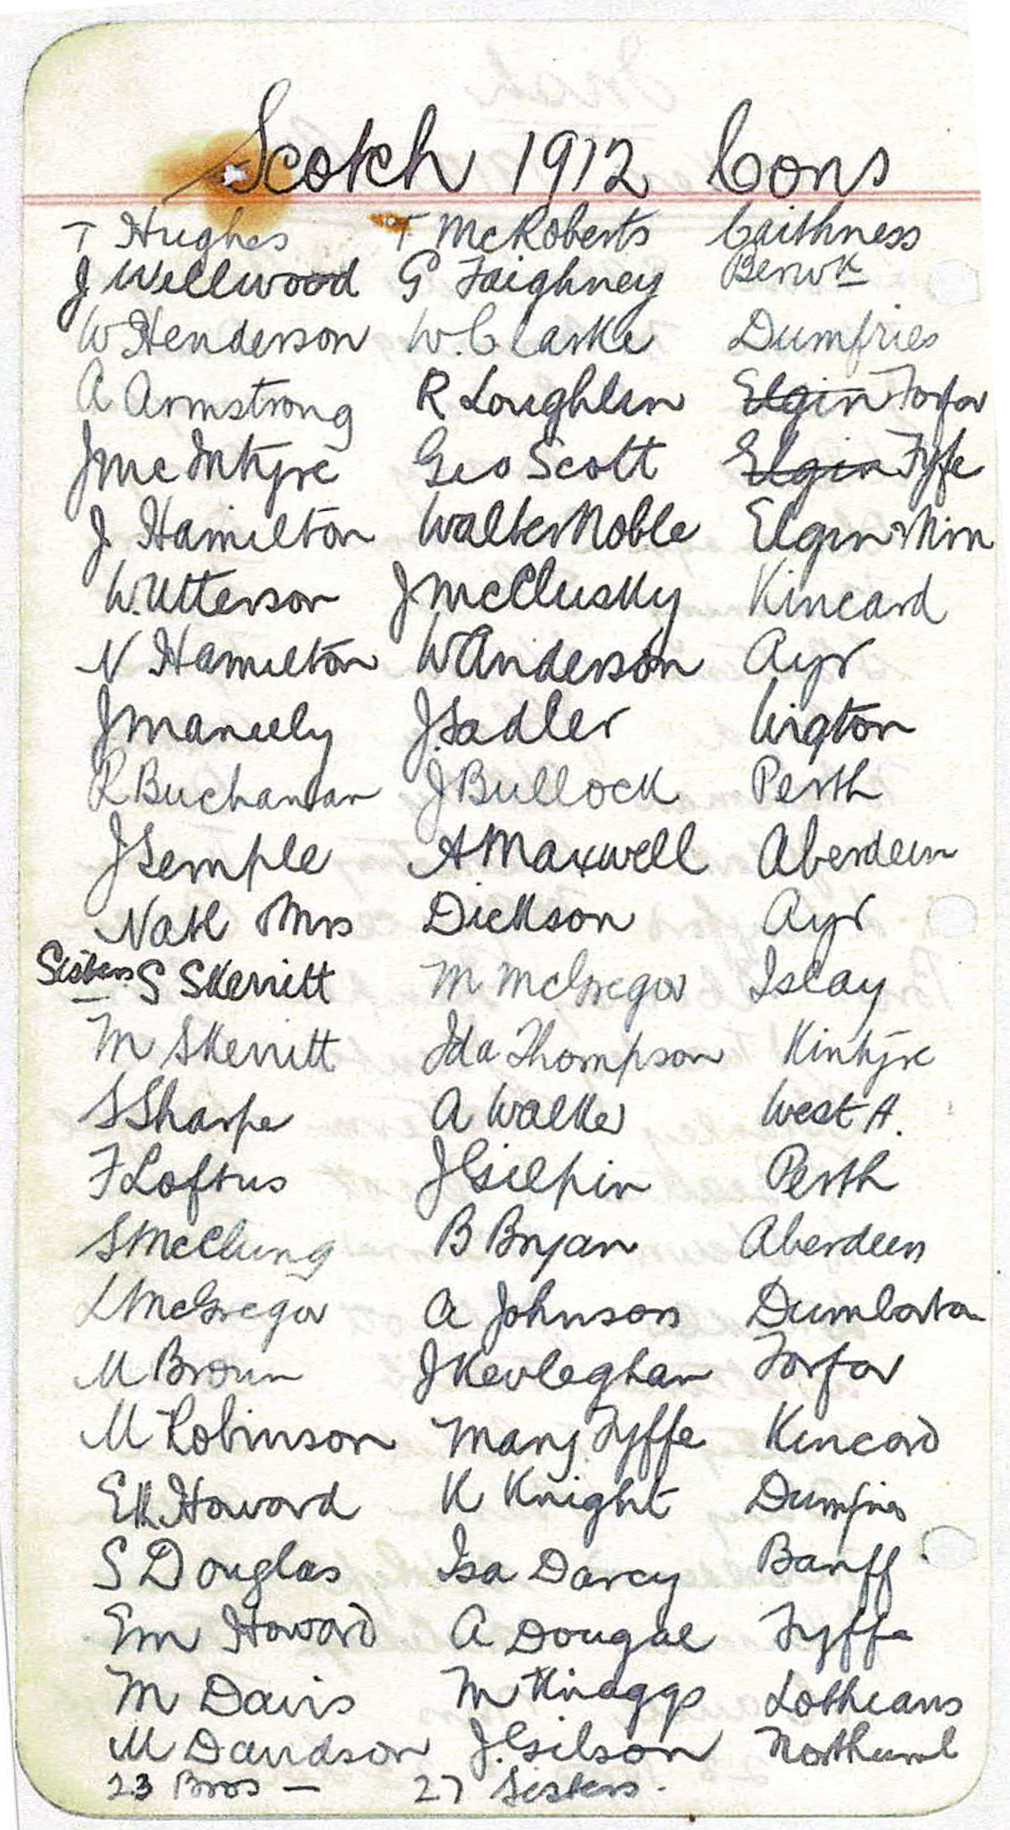 Scotch 1912 Cons
T Hughes T McRoberts Caithness
J Wellwood G Faighney Berwk
W Henderson W. Clarke Dumfries
A Armstrong R Loughlin Elgin Forfar
J McIntyre Geo Scott Elgin Fyfe
J Hamilton Walter Noble Elgin & Nirn
W. Utterson J McClusky Kincard
N Hamilton W Anderson Ayr
J Maneely J. Sadler Wigton
R Buchanan J Bullock Perth
J Semple A Maxwell Aberdeen
Nath Mrs Dickson Ayr
Sisters S Skerritt M McGregor Islay
M Skerritt Ida Thompson Kintyre
S Sharpe A Walker West H.
F Loftus J Gilpin Perth
S McClung B Bryan Aberdeen
L McGregor A Johnson Dumbarton
M Brown J Keoleghan Forfar
M Robinson Mary Fyffe Kincard
EM. Howard K Knight Dumfries
S Douglas Isa Darcy Banff
Em Howard A Dougal Fyffe
M Davis M Knaggs Lothians
M Davidson J. Gilson Northumb
23 Bros — 27 Sisters.